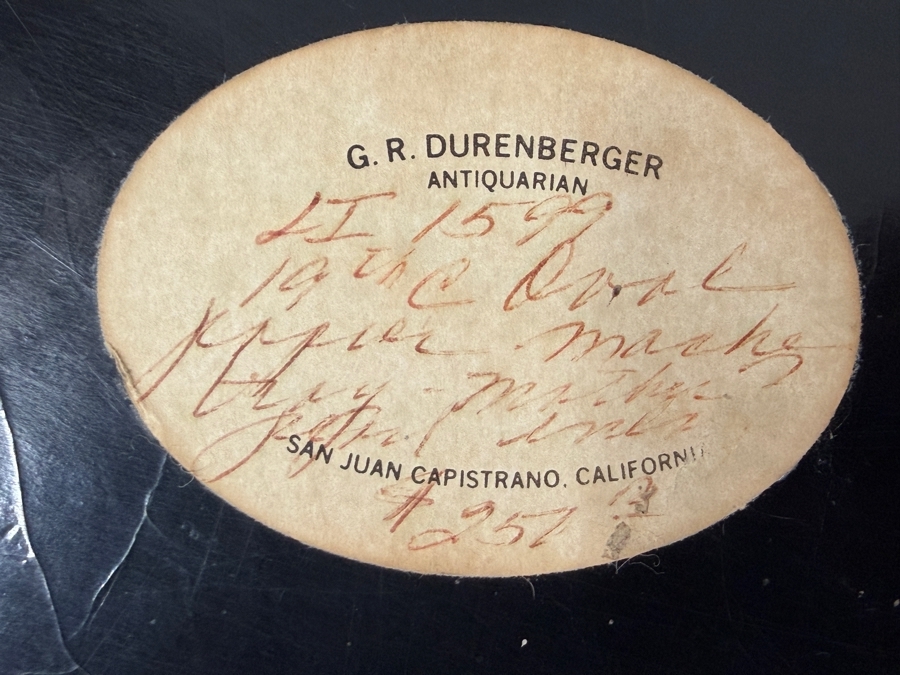 G. R. DURENBERGER
ANTIQUARIAN
LI 1599
19th C Oval
papier mache
tray - Mother
pearl inlay
SAN JUAN CAPISTRANO, CALIFORNIA
$ 251